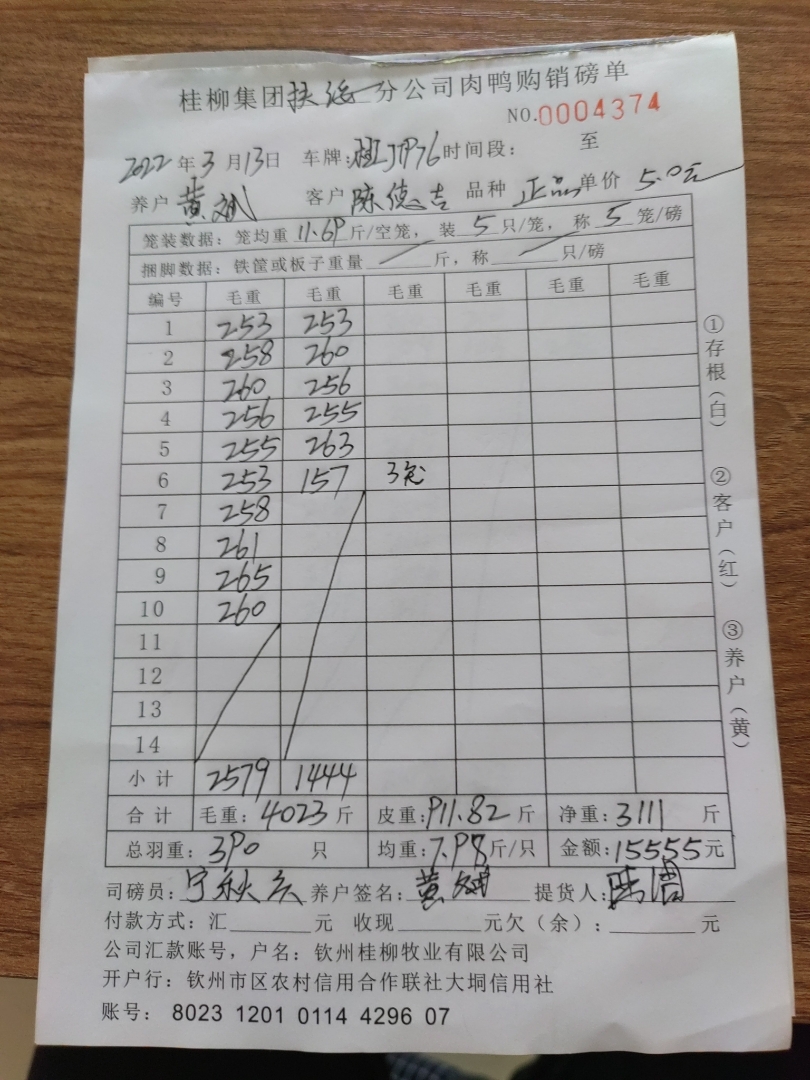 桂柳集团扶绥分公司肉鸭购销磅单
NO.0004374
2022年3月13日 车牌: 时间段: 至
养户 黄斌 客户 陈德吉 品种 正品 单价 5.0元
笼装数据: 笼均重 11.69 斤/空笼, 装 5 只/笼, 称 5 笼/磅
捆脚数据: 铁筐或板子重量 斤, 称 只/磅
编号 毛重 毛重 毛重 毛重 毛重 毛重
1 253 253
2 258 260
3 260 256
4 256 255
5 255 263
6 253 157 3笼
7 258
8 261
9 265
10 260
11
12
13
14
小计 2579 1444
合计 毛重: 4023 斤 皮重: 911.82 斤 净重: 3111 斤
总羽重: 390 只 均重: 7.98 斤/只 金额: 15555 元
司磅员: 宁秋 养户签名: 黄斌 提货人:
付款方式: 汇 元 收现 元欠(余): 元
公司汇款账号, 户名: 钦州桂柳牧业有限公司
开户行: 钦州市区农村信用合作联社大垌信用社
账号: 8023 1201 0114 4296 07
①存根(白)
②客户(红)
③养户(黄)